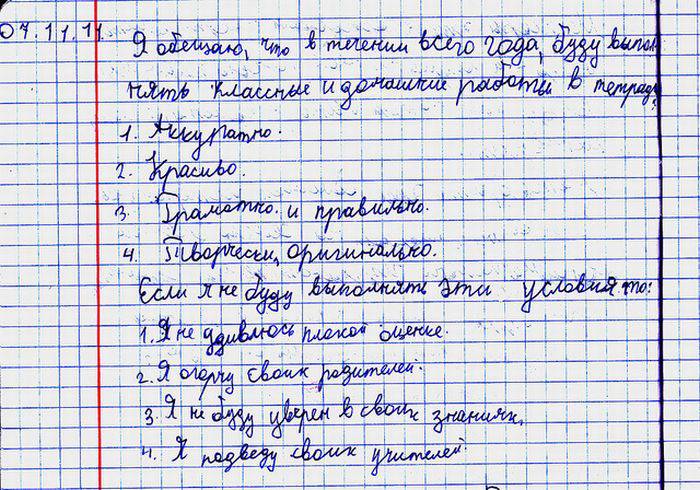 07.11.11. Я обещаю, что в течении всего года, буду выпол
нять классные и домашние работы в тетради,
1. Аккуратно.
2. Красиво.
3. Грамотно. и правильно.
4. Творчески, оригинально.
Если я не буду выполнять эти условия, то:
1. Я не удивлюсь плохой оценке.
2. Я огорчу своих родителей.
3. Я не буду уверен в своих знаниях.
4. Я подведу своих учителей.